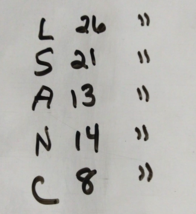 L 26 "
S 21 "
A 13 "
N 14 "
C 8 "